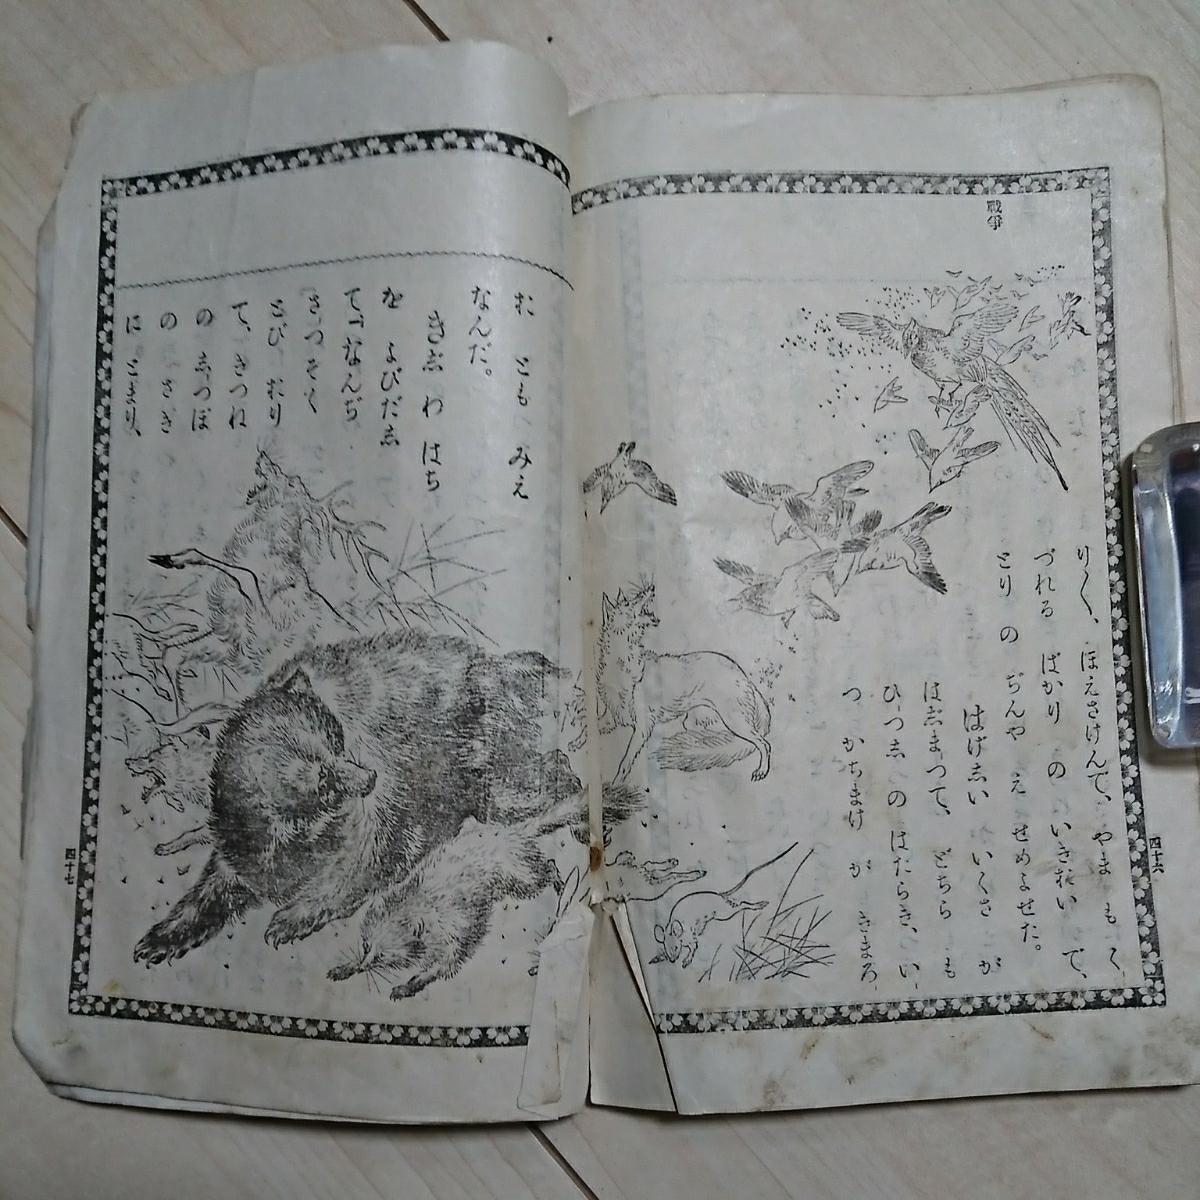 戰爭
りく、ほえさけんで、やま も く
づれる ばかり の いきおい で、
とり の ぢんや え せめよせた。
はげゑい いくさ が
はゑまつて、どちら も
ひつゑ の はたらき、い
つ かちまけ が きまろ
四十六
お とも みえ
なんだ。
きゑ わ はち
を よびだゑ
て、「なんぢ
さつそく
とび おり
て、きつね
の ゑつぽ
の さき
に とまり、
四十七